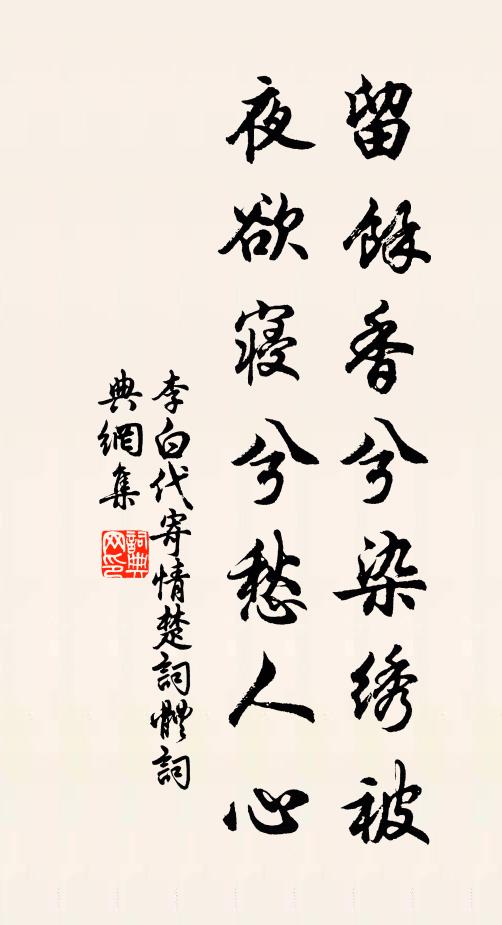 留餘香兮染绣被
夜欲寝兮愁人心
李白代寄情楚詞體詞
典網集
詞典
网印